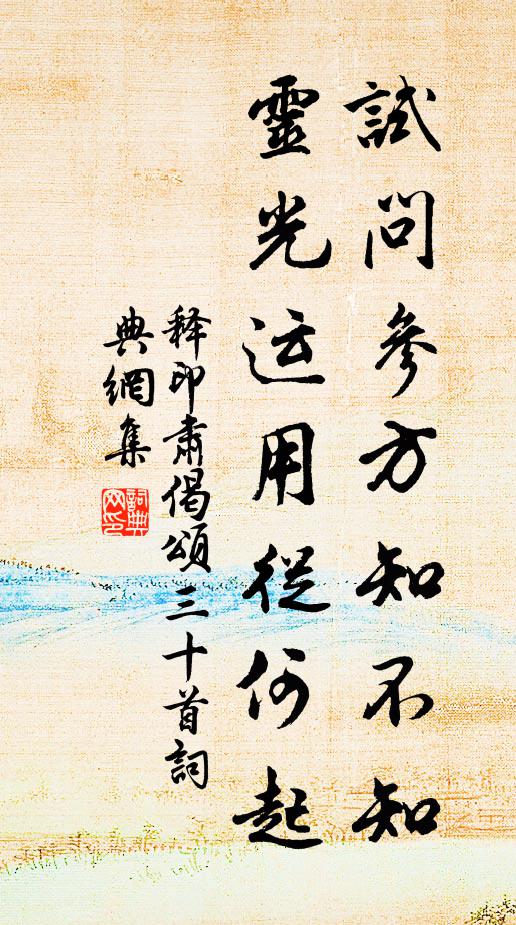 試問參方知不知
靈光运用從何起
释印肃偈頌三十首詞
典網集
詞典
网印